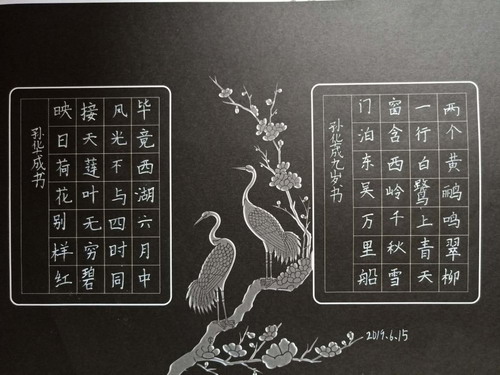 两个黄鹂鸣翠柳
一行白鹭上青天
窗含西岭千秋雪
门泊东吴万里船
孙华成九岁书
毕竟西湖六月中
风光不与四时同
接天莲叶无穷碧
映日荷花别样红
孙华成书
2019.6.15